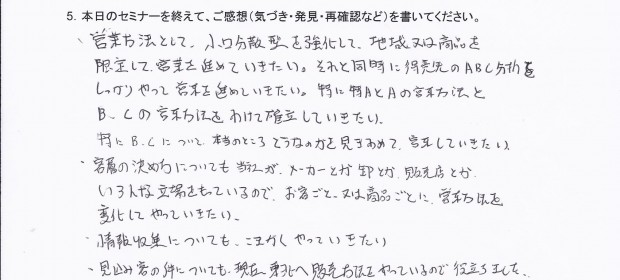 5. 本日のセミナーを終えて、ご感想(気づき・発見・再確認など)を書いてください。
・営業方法として、小口分散型を強化して、地域又は商品を
限定して営業を進めていきたい。それと同時に得意先のABC分析を
しっかりやって営業を進めていきたい。特に特AとAの営業方法と
B、Cの営業方法をわけて確立していきたい。
特にB.Cについて本当のところどうなのかを見きわめて、営業していきたい
・客層の決め方についても当社が、メーカーとか卸とか、販売店とか
いろんな立場をもっているので、お客ごと、又は商品ごとに、営業方法を
変化してやっていきたい。
・情報収集についても、こまかくやっていきたい
・見込み客の件についても、現在、東北へ販売方法をやっているので役立ちました。